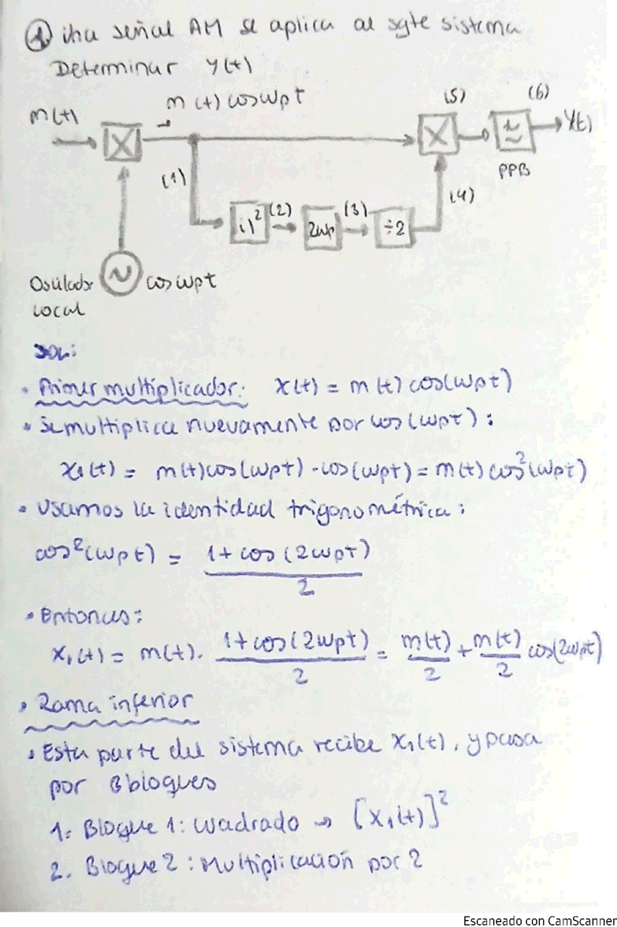 1. Una señal AM se aplica al sgte sistema
Determinar y(t)
m(t) cos wpt
(5)
(6)
m(t)
X
X
y(t)
PPB
(1)
(4)
( )² (2) 2wp (3) ÷2
Oscilador
local
cos wpt
Sol:
• Primer multiplicador: x(t) = m(t) cos(wpt)
• Se multiplica nuevamente por cos(wpt):
x₁(t) = m(t)cos(wpt) · cos(wpt) = m(t) cos²(wpt)
• Usamos la identidad trigonométrica:
cos²(wpt) = 1 + cos(2wpt) / 2
• Entonces:
x₁(t) = m(t) · 1 + cos(2wpt) / 2 = m(t)/2 + m(t)/2 cos(2wpt)
• Rama inferior
• Esta parte del sistema recibe x₁(t), y pasa
por 3 bloques
1. Bloque 1: cuadrado → [x₁(t)]²
2. Bloque 2: Multiplicación por 2
Escaneado con CamScanner